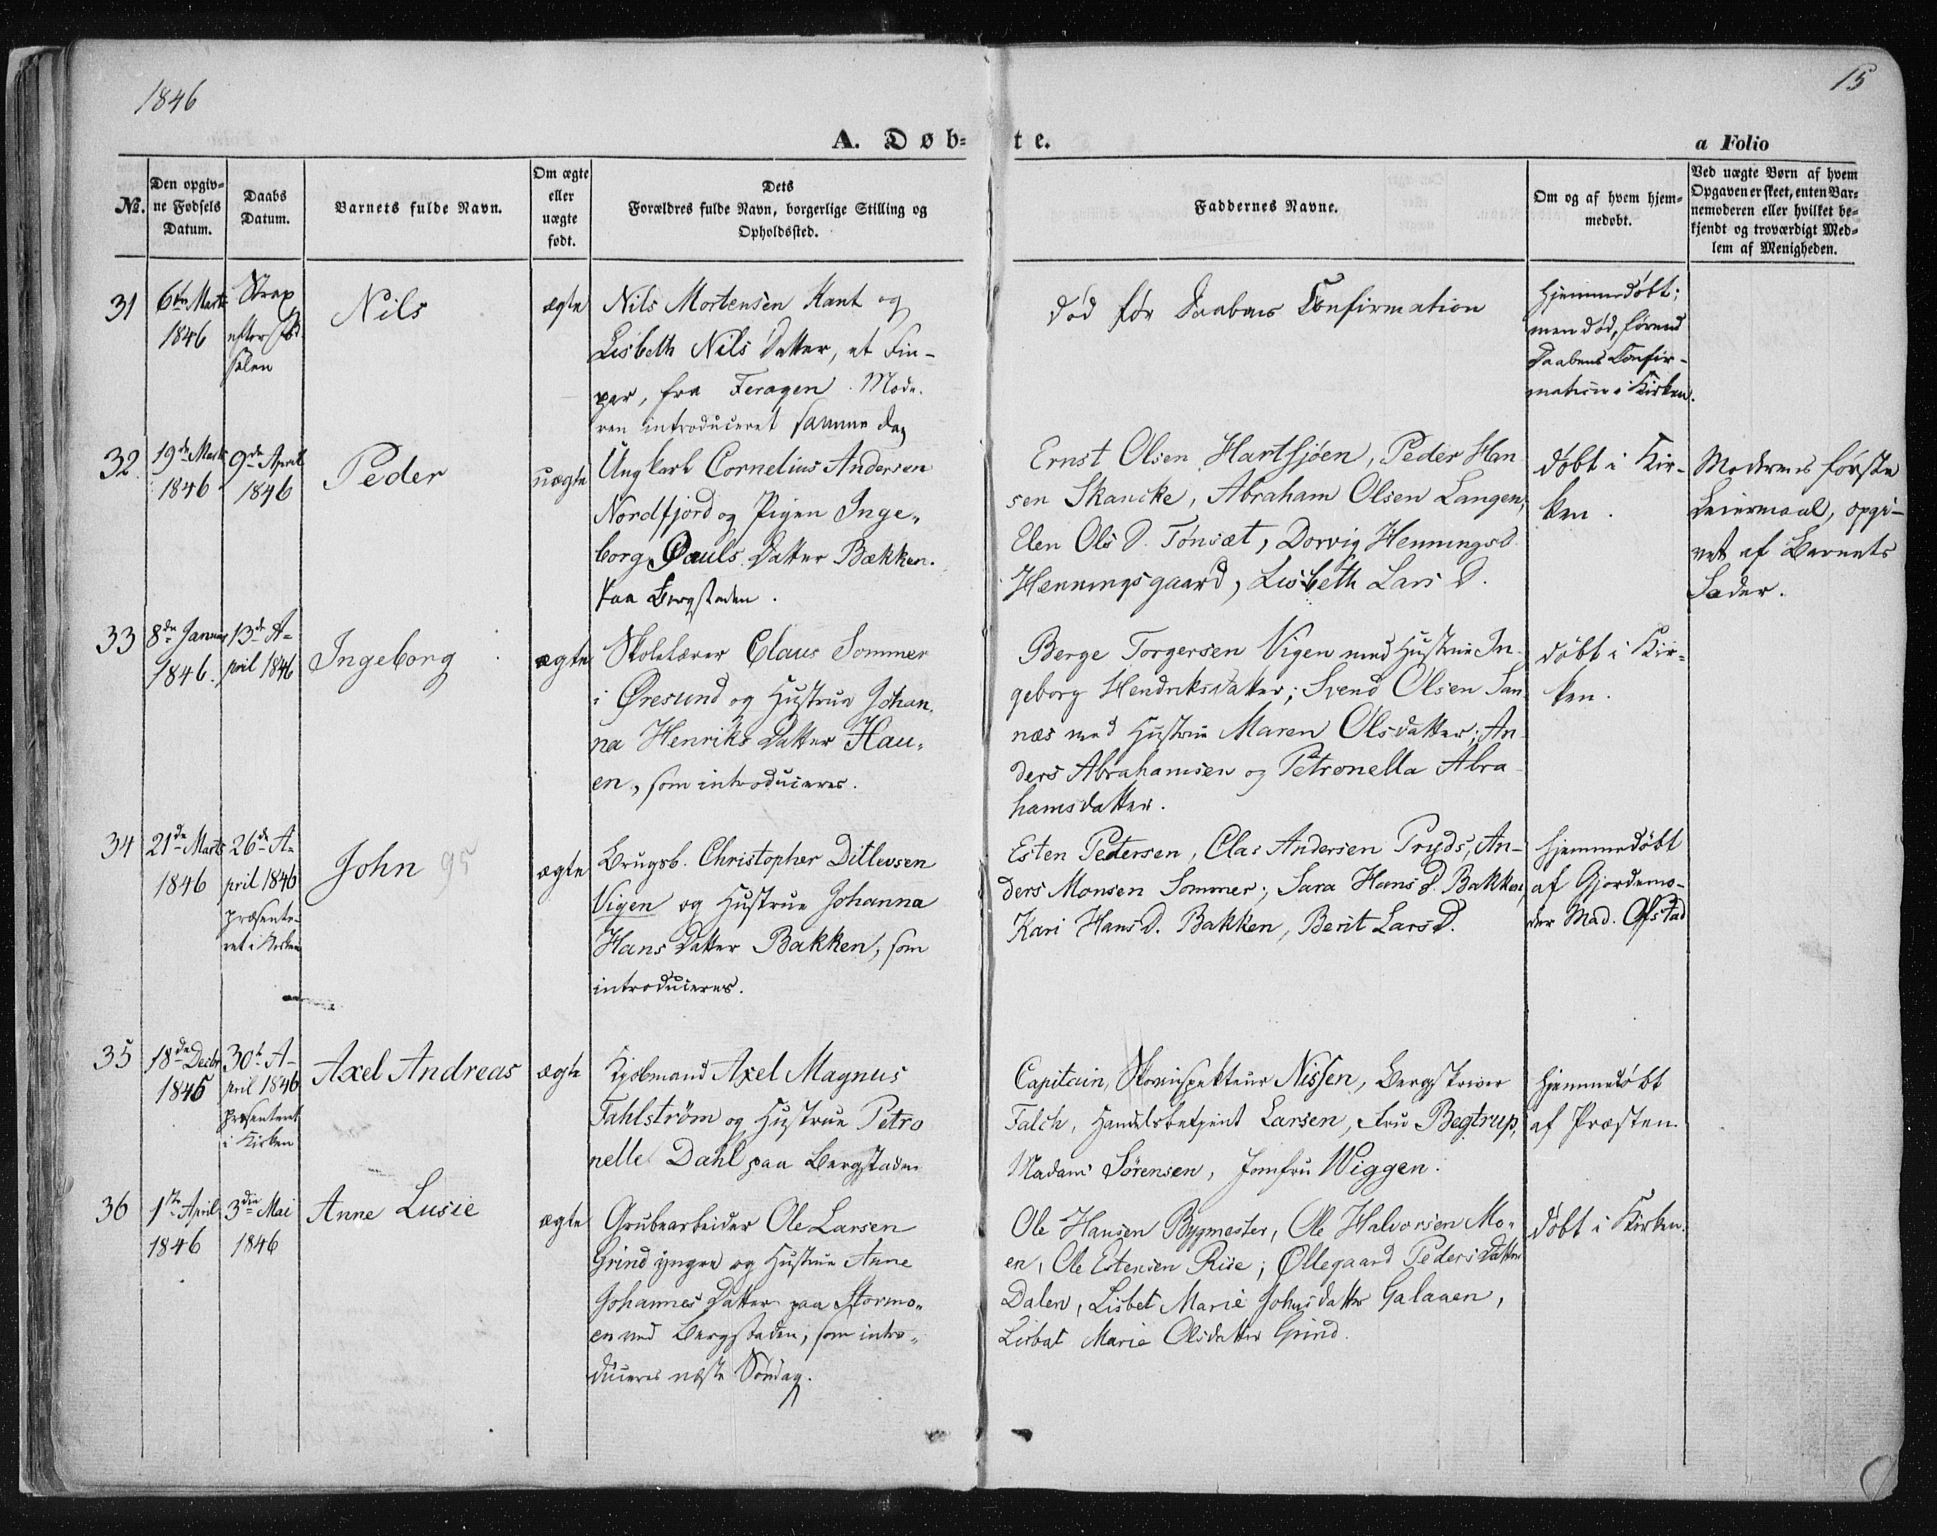 1846
15
A. Døb-
te.
a Folio
No.
Den opgiv-
ne Fødsels
Datum.
Daabs
Datum.
Barnets fulde Navn.
Om ægte
eller
uægte
født.
Dets
Forældres fulde Navn, borgerlige Stilling og
Opholdssted.
Faddernes Navne.
Om og af hvem hjem-
medøbt.
Ved uægte Børn af hvem
Opgaven er skeet, enten Bar-
nemoderen eller hvilket be-
kjendt og troværdigt Med-
lem af Menigheden.
31
6te Marts
1846
Strax
efter Fød
selen
Nils
ægte
Nils Mortensen Kant og
Lisbeth Nils Datter, et Fin-
par, fra Feragen. Mode-
ren introduceret samme dag
død før Daabens Confirmation
hjemmedøbt;
men død, førend
Daabens Confir-
mation i Kirken.
32
19de Marts
1846
9de April
1846
Peder
uægte
Ungkarl Cornelius Andersen
Nordfjord og Pigen Inge-
borg Pauls Datter Bækken.
paa Bergstaden.
Ernst Olsen Hartsjøen, Peder Han
sen Skancke, Abraham Olsen Langen,
Elen Ols D. Tønset, Dorvig Hennings D.
Henningsgaard, Lisbeth Lars D.
døbt i Kir-
ken.
Moderens første
Leiermaal, opgi-
vet af Barnets
Fader.
33
8de Januar
1846.
13de A-
pril 1846
Ingeborg
ægte
Skolelærer Claus Sommer
i Øresund og Hustrue Johan-
na Henriks Datter Hau-
en, som introduceres.
Berge Torgersen Vigen med Hustrue In-
geborg Hendriksdatter; Svend Olsen San-
næs med Hustrue Maren Olsdatter; An-
ders Abrahamsen og Petronella Abra-
hamsdatter.
døbt i Kir-
ken.
34
21de Marts
1846
26de A-
pril 1846
præsente-
ret i Kirken
John 95
ægte
Brugsb. Christopher Ditlevsen
Vigen og Hustrue Johanna
Hans Datter Bakken, som
introduceres.
Esten Pedersen, Clas Andersen Pryds, An-
ders Monsen Sommer; Sara Hans D. Bakken,
Kari Hans D. Bakken, Berit Lars D.
hjemmedøbt
af Gjordemo-
der Mad. Ofstad
35
18de Decbr
1845
30te A-
pril 1846
Præsenteret
i Kirken
Axel Andreas
ægte
Kjøbmand Axel Magnus
Fahlstrøm og Hustrue Petro
nelle Dahl paa Bergstaden
Capitain, Skovinspekteur Nissen, Bergskriver
Falch, Handelsbetjent Larsen, Fru Begtrup,
Madam Sørensen, Jomfru Wiggen.
hjemmedøbt
af Præsten.
36
1ste April
1846
3die Mai
1846
Anne Lusie
ægte
Grubearbeider Ole Larsen
Grind yngre og Hustrue Anne
Johannes Datter paa Stormo-
en ved Bergstaden, som intro-
duceres næste Søndag.
Ole Hansen Bygmester, Ole Halvorsen Mo-
en, Ole Estensen Rise; Øllegaard Peders Datter
Dalen, Lisbet Marie Johnsdatter Galaaen,
Lisbet Marie Olsdatter Grind.
døbt i Kirken.